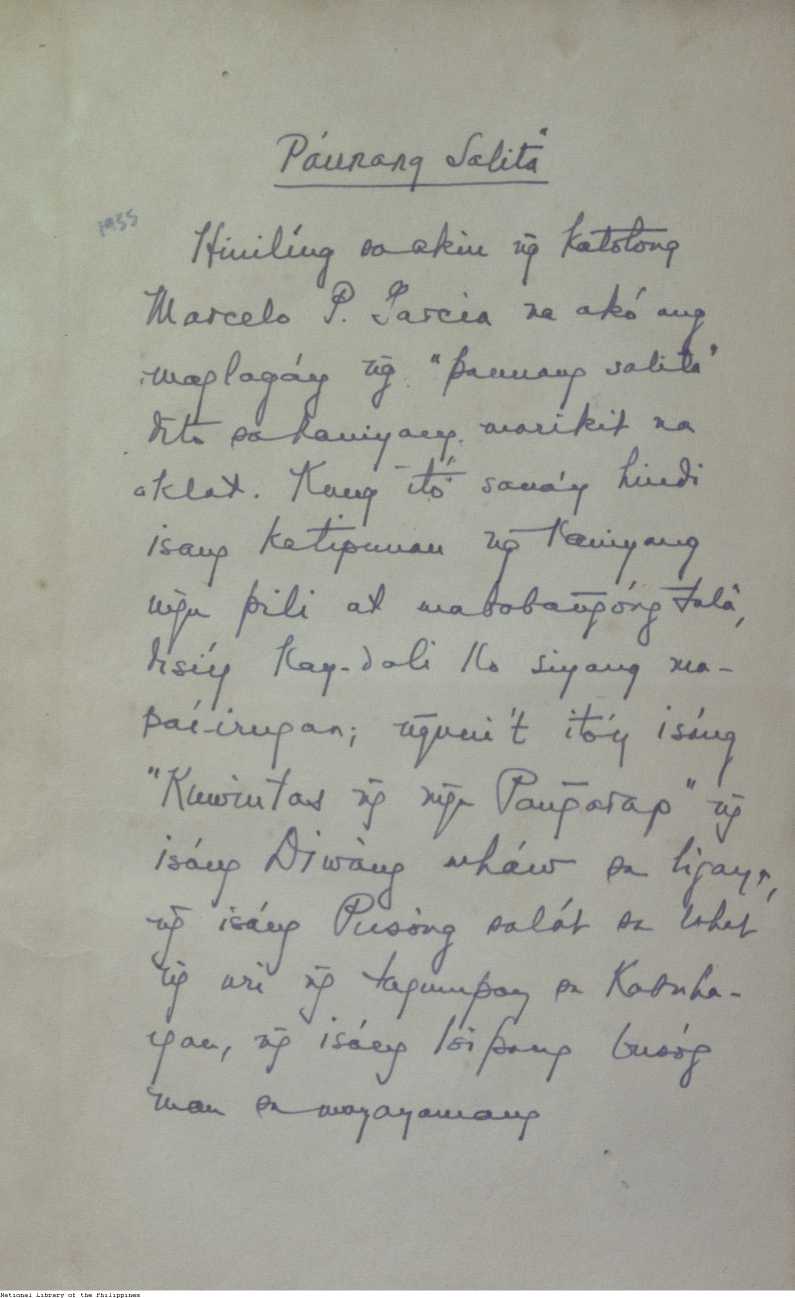 Páunang Salitâ
1935
Hinilíng sa akin n͠g katotong
Marcelo P. Garcia na akó ang
maglagáy n͠g "paunang salitâ"
dito sa kaniyang marikit na
aklat. Kung itó sanáy hindi
isang katipunan n͠g kaniyang
mg͠a pili at mababan͠góng talâ,
disíy kay-dali ko siyang ma-
pai-irugan; n͠guni't itó'y isáng
"Kuwintas n͠g mg͠a Pan͠garap" n͠g
isáng Diwàng uháw sa ligaya,
n͠g isáng Pusòng salát sa lahat
n͠g uri n͠g tagumpay sa Kabuha-
yan, n͠g isáng Isipang busóg
man sa mayayamang
National Library of the Philippines